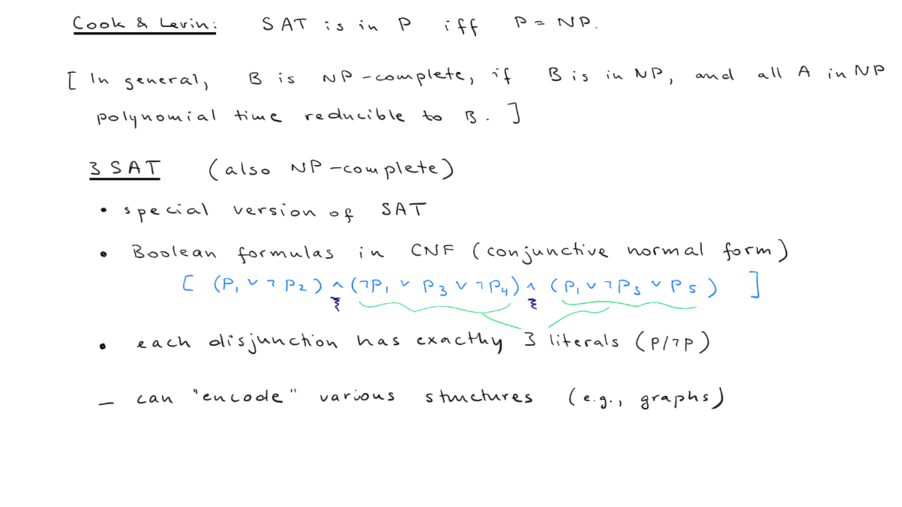 Cook & Levin: SAT is in P iff P = NP.
[ In general, B is NP-complete, if B is in NP, and all A in NP
polynomial time reducible to B. ]
3 SAT (also NP-complete)
• special version of SAT
• Boolean formulas in CNF (conjunctive normal form)
[ (P₁ ∨ ¬P₂) ∧ (¬P₁ ∨ P₃ ∨ ¬P₄) ∧ (P₁ ∨ ¬P₃ ∨ P₅) ]
• each disjunction has exactly 3 literals (P/¬P)
– can "encode" various structures (e.g., graphs)